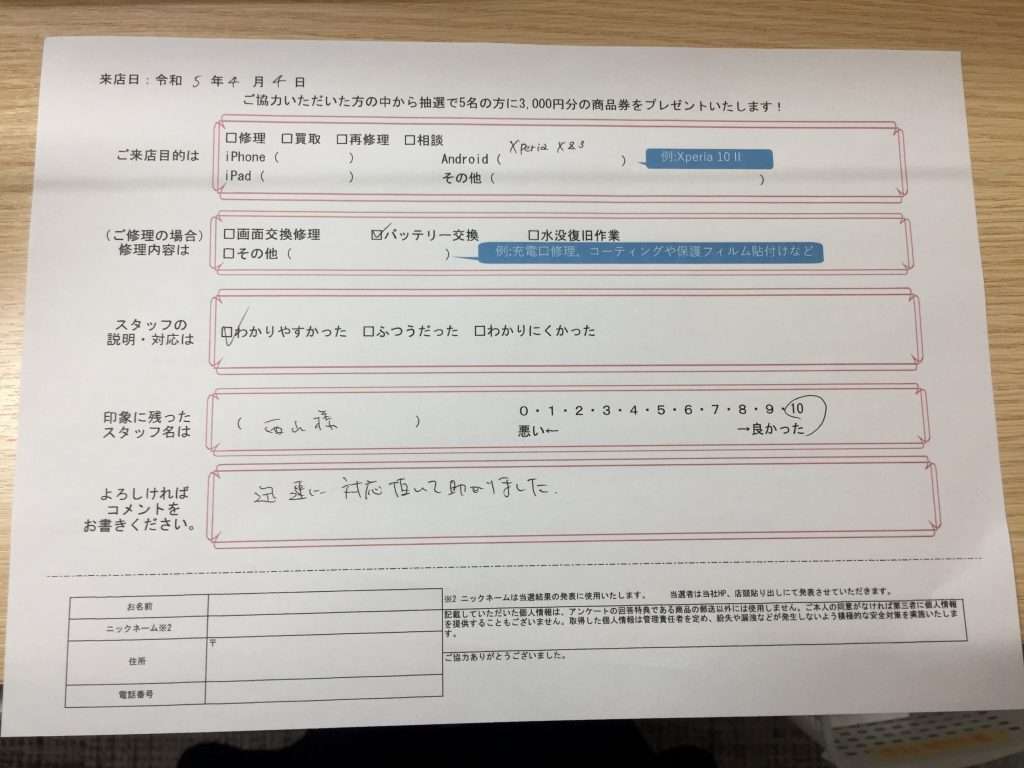 来店日：令和 5 年 4 月 4 日
ご協力いただいた方の中から抽選で5名の方に3,000円分の商品券をプレゼントいたします！
ご来店目的は
□修理 □買取 □再修理 □相談
iPhone（ ） Android（ Xperia XZ3 ） 例:Xperia 10 II
iPad（ ） その他（ ）
（ご修理の場合）
修理内容は
□画面交換修理 ☑バッテリー交換 □水没復旧作業
□その他（ ） 例:充電口修理、コーティングや保護フィルム貼付けなど
スタッフの
説明・対応は
☑わかりやすかった □ふつうだった □わかりにくかった
印象に残った
スタッフ名は
（ 西山様 ）
0・1・2・3・4・5・6・7・8・9・10
悪い← →良かった
よろしければ
コメントを
お書きください。
迅速に対応頂いて助かりました.
お名前
ニックネーム※2
住所
〒
電話番号
※2 ニックネームは当選結果の発表に使用いたします。 当選者は当社HP、店頭貼り出しにて発表させていただきます。
記載していただいた個人情報は、アンケートの回答特典である商品の郵送以外には使用しません。ご本人の同意がなければ第三者に個人情報
を提供することもございません。取得した個人情報は管理責任者を定め、紛失や漏洩などが発生しないよう積極的な安全対策を実施いたしま
す。
ご協力ありがとうございました。